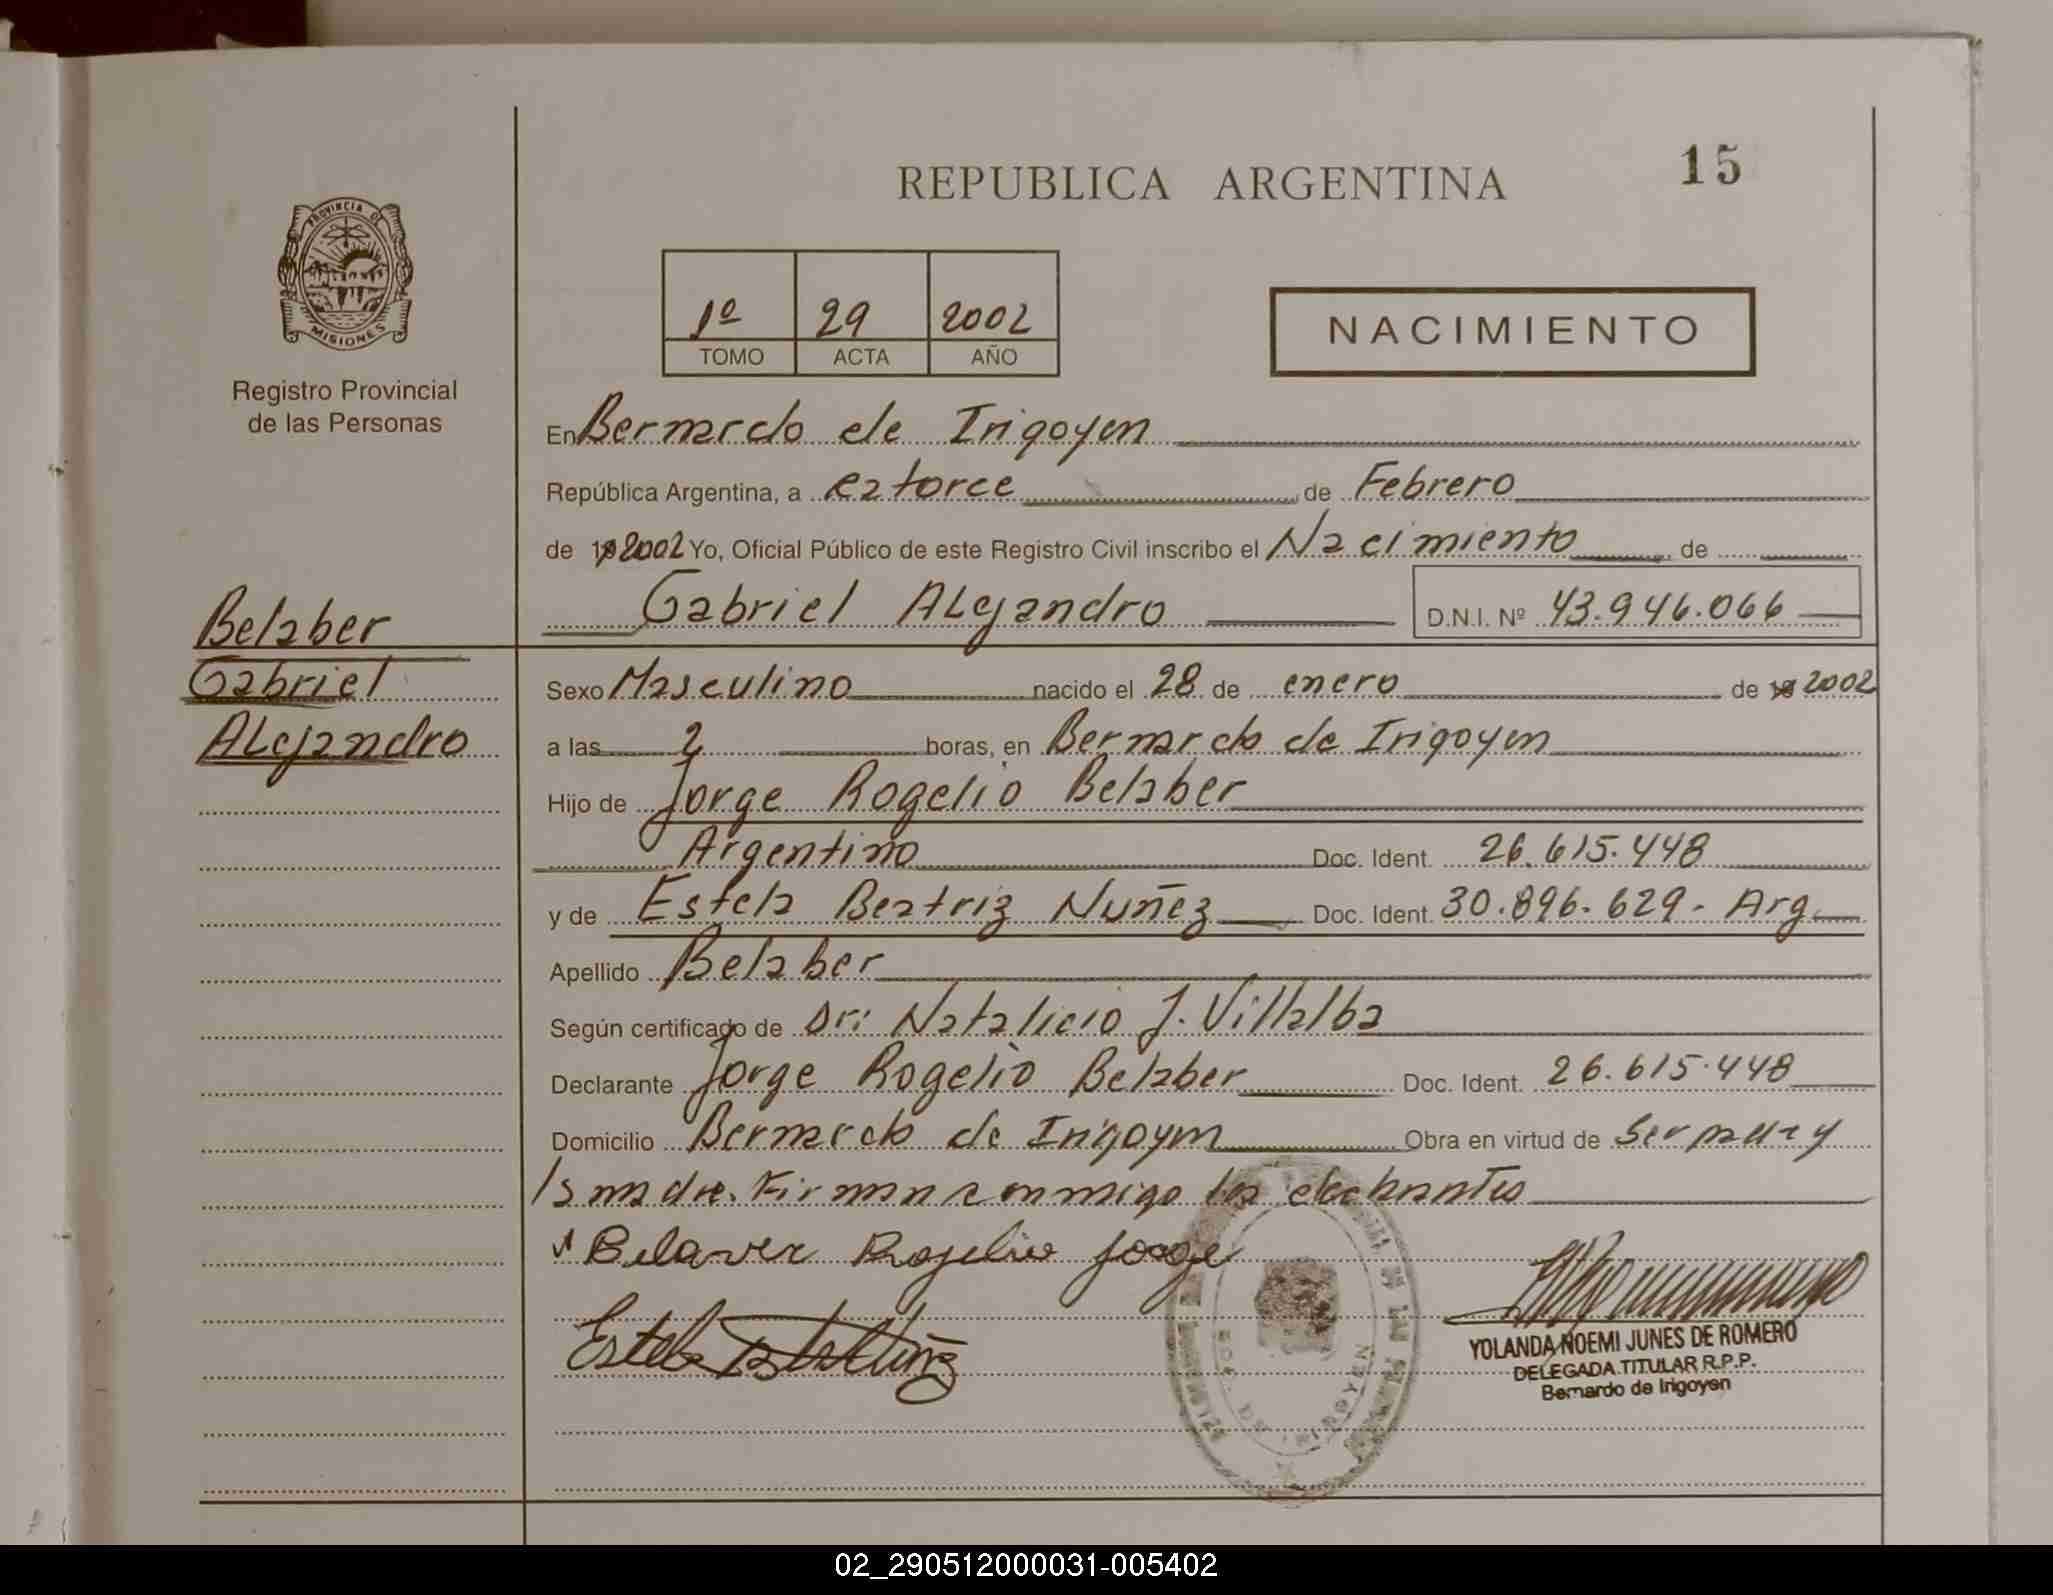 REPUBLICA ARGENTINA
15
PROVINCIA DE
MISIONES
Registro Provincial
de las Personas
1º 29 2002
TOMO ACTA AÑO
NACIMIENTO
En Bernardo de Irigoyen
República Argentina, a catorce de Febrero
de 19 2002 Yo, Oficial Público de este Registro Civil inscribo el Nacimiento de
Gabriel Alejandro D.N.I. Nº 43.946.066
Belaber
Gabriel
Alejandro
Sexo Masculino nacido el 28 de enero de 19 2002
a las 2 horas, en Bernardo de Irigoyen
Hijo de Jorge Rogelio Belaber
Argentino Doc. Ident. 26.615.448
y de Estela Beatriz Nuñez Doc. Ident. 30.896.629- Arg.
Apellido Belaber
Según certificado de Dr: Natalicio J. Villalba
Declarante Jorge Rogelio Belaber Doc. Ident. 26.615.448
Domicilio Bernardo de Irigoyen Obra en virtud de Ser padre y
la madre. Firman conmigo los declarantes
Belaver Rogelio Jorge
Estela
YOLANDA NOEMI JUNES DE ROMERO
DELEGADA TITULAR R.P.P.
Bernardo de Irigoyen
DE IRIGOYEN
02_290512000031-005402